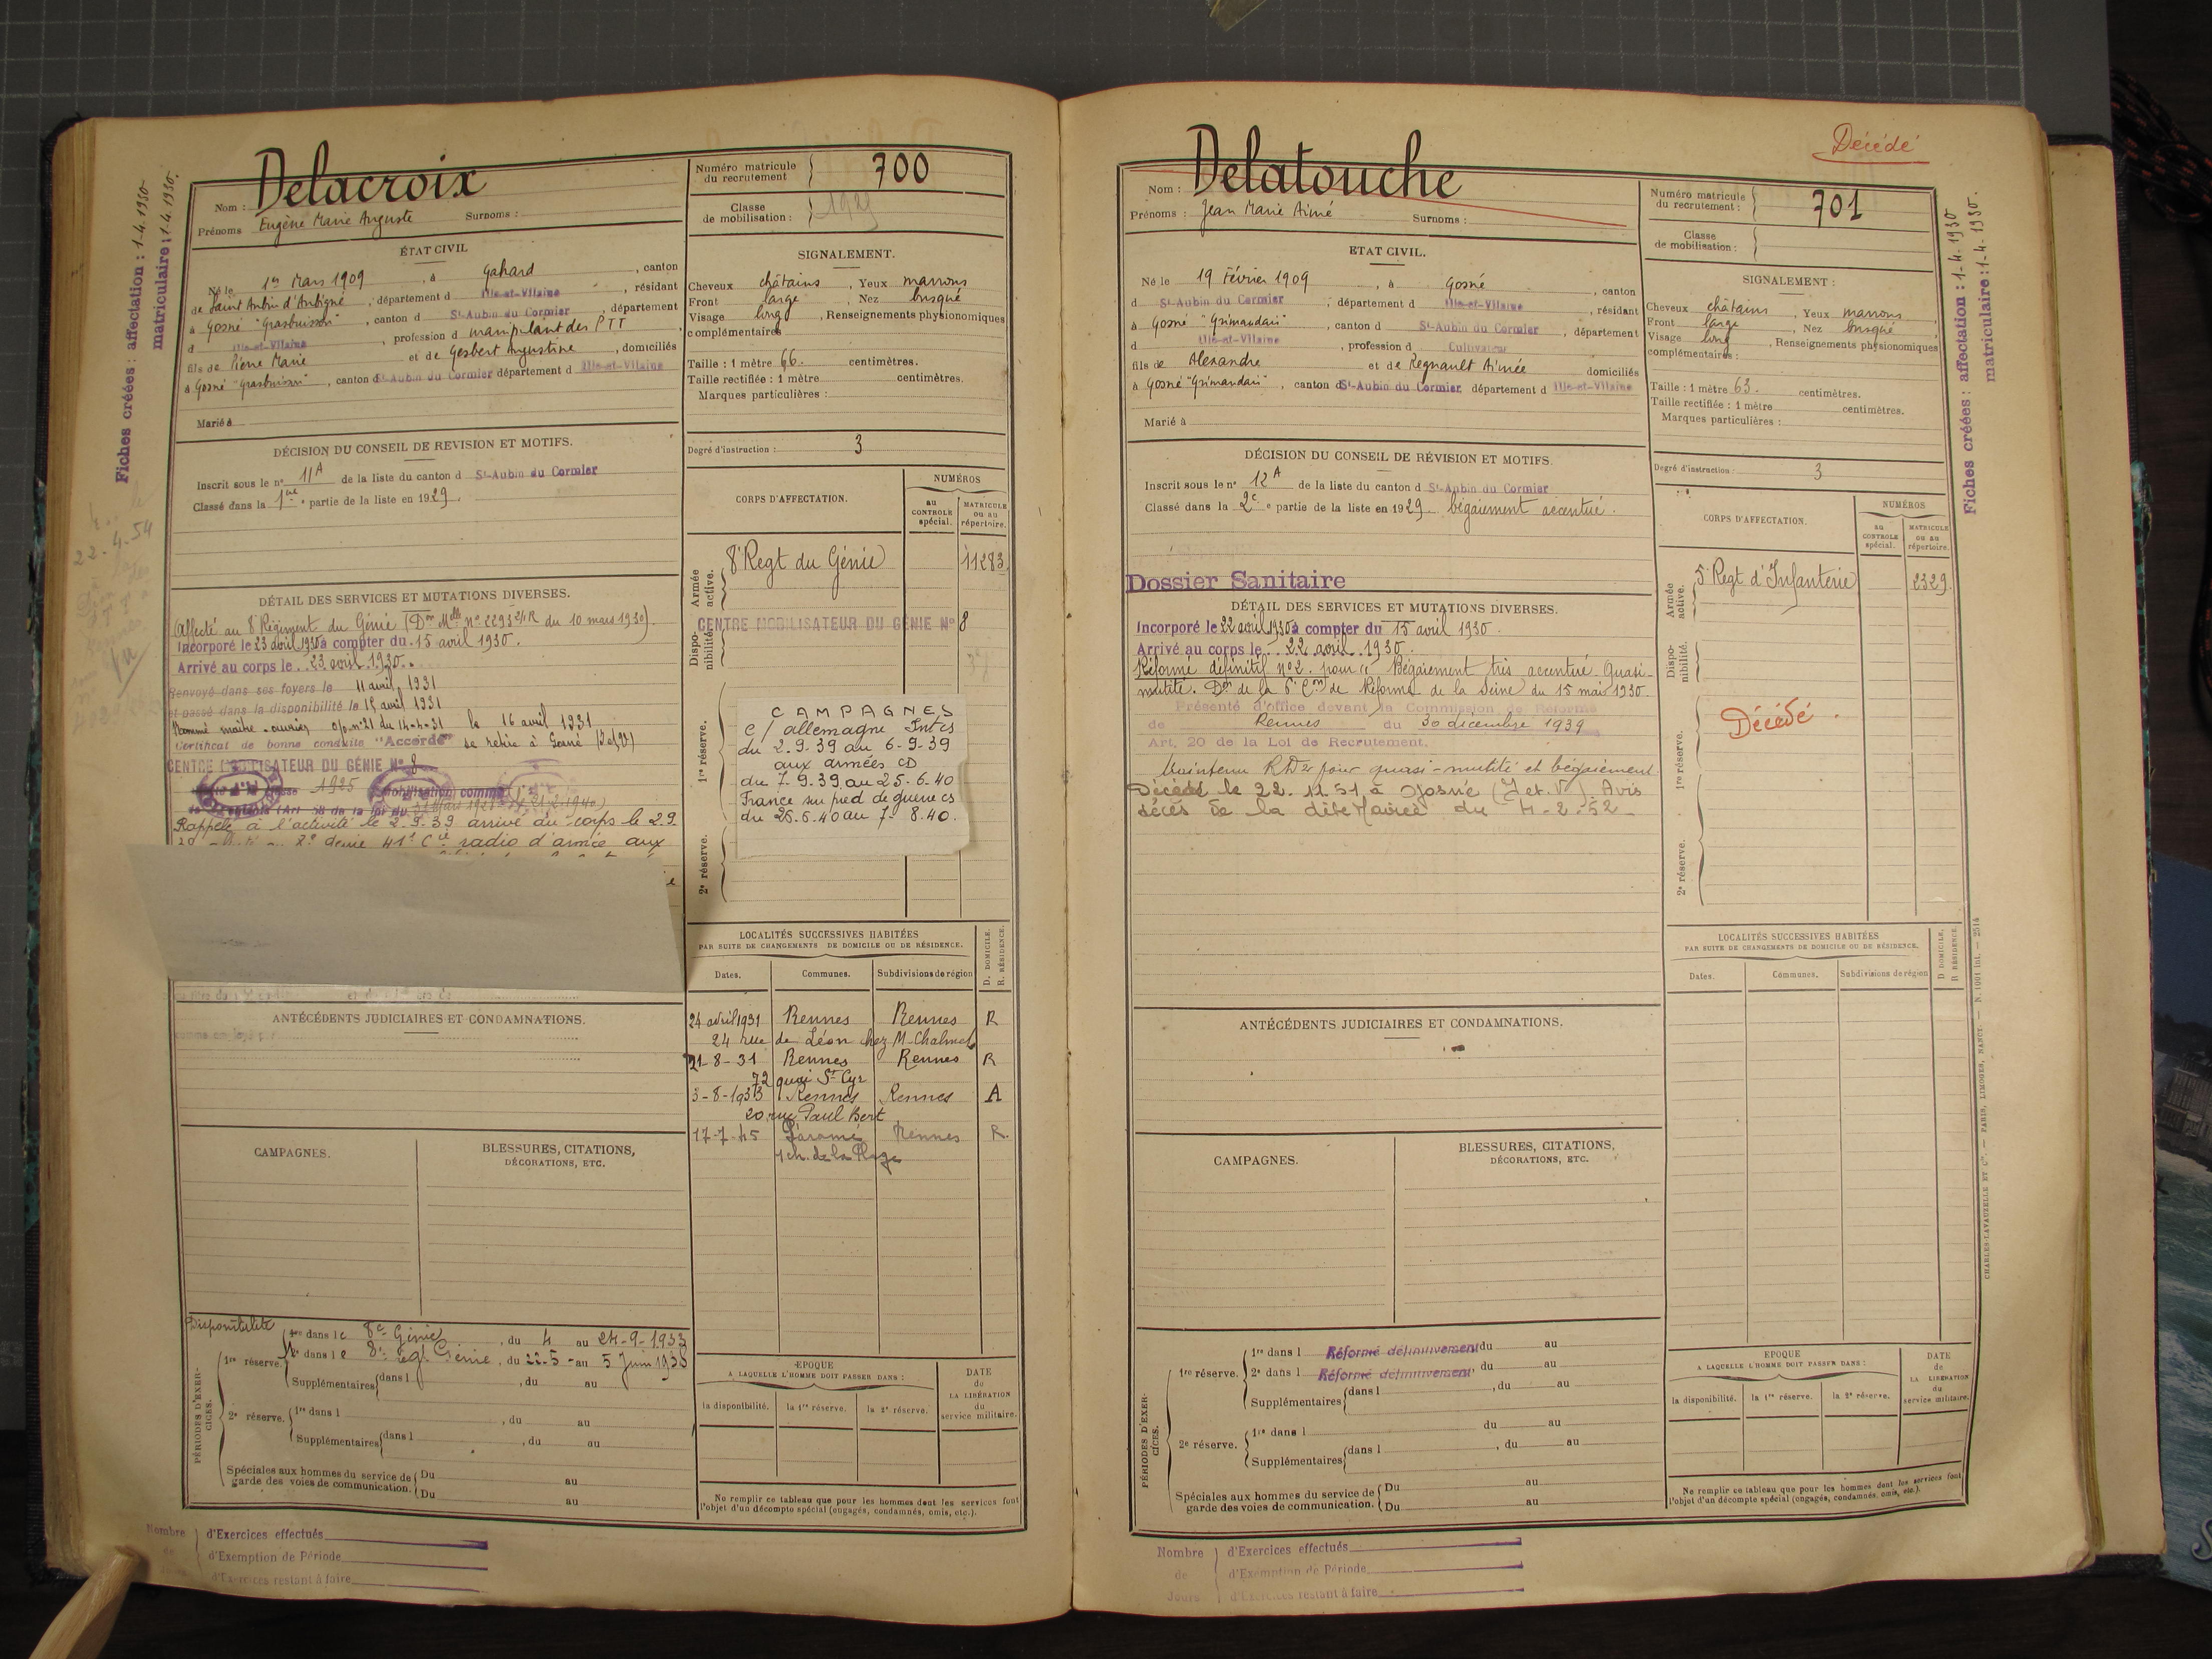 Fiches créées : affectation : 1-4-1930
matriculaire : 1-4-1930.
22-4-54
Nom : Delacroix
Prénoms Eugène Marie Auguste Surnoms :
Numéro matricule du recrutement 700
Classe de mobilisation : 1929
ÉTAT CIVIL
Né le 1er Mars 1909, à Gahard, canton
de Saint Aubin d'Aubigné, département d Ille-et-Vilaine, résidant
à Gosné "Grasbuisson", canton d St-Aubin du Cormier, département
d Ille-et-Vilaine, profession d manipulant des PTT
fils de Pierre Marie et de Gesbert Augustine, domiciliés
à Gosné "Grasbuisson", canton d St-Aubin du Cormier département d Ille-et-Vilaine
Marié à
SIGNALEMENT.
Cheveux châtains, Yeux marrons
Front large, Nez busqué
Visage long, Renseignements physionomiques
complémentaires
Taille : 1 mètre 66. centimètres.
Taille rectifiée : 1 mètre centimètres.
Marques particulières :
Degré d'instruction : 3
DÉCISION DU CONSEIL DE REVISION ET MOTIFS.
Inscrit sous le n° 11A de la liste du canton d St-Aubin du Cormier
Classé dans la 1re partie de la liste en 1929.
CORPS D'AFFECTATION.
NUMÉROS
au CONTROLE spécial.
MATRICULE ou au répertoire.
Armée active.
8e Regt du Génie 11283
Disponibilité
CENTRE MOBILISATEUR DU GÉNIE N° 8
1re réserve.
CAMPAGNES
c/ allemagne Int cs
du 2-9-39 au 6-9-39
aux armées CD
du 7-9-39 au 25-6-40
France sur pied de guerre cs
du 26-6-40 au 7-8-40.
2e réserve.
DÉTAIL DES SERVICES ET MUTATIONS DIVERSES.
Affecté au 8e Régiment du Génie (Don Mlle n° 2293 du 10 mars 1930).
Incorporé le 23 avril 1930 à compter du 15 avril 1930.
Arrivé au corps le 23 avril 1930.
Renvoyé dans ses foyers le 11 avril 1931
et passé dans la disponibilité le 15 avril 1931
Nommé maître-ouvrier o/p n°21 du 14-4-31 le 16 avril 1931
Certificat de bonne conduite "Accordé" se retire à Gosné (I et V)
CENTRE MOBILISATEUR DU GÉNIE N° 8
classe 1925 mobilisation comme
Rappelé à l'activité le 2-9-39 arrivé au corps le 2.9
radio d'armée aux
LOCALITÉS SUCCESSIVES HABITÉES
PAR SUITE DE CHANGEMENTS DE DOMICILE OU DE RÉSIDENCE.
Dates. Communes. Subdivisions de région D. DOMICILE. R. RÉSIDENCE.
24 avril 1931 Rennes Rennes R
24 rue de Léon chez M. Chalmel
21-8-31 Rennes Rennes R
72 quai St Cyr
3-8-1933 Rennes Rennes A
20 rue Paul Bert
17-7-45 Paramé Rennes R.
1 ch. de la Plage
ANTÉCÉDENTS JUDICIAIRES ET CONDAMNATIONS.
CAMPAGNES.
BLESSURES, CITATIONS,
DÉCORATIONS, ETC.
PÉRIODES D'EXERCICES.
Disponibilité
1re dans le 8e Génie, du 4 au 24-9-1933
1re réserve. 2e dans le 8e regt Génie, du 22-5 au 5 Juin 1938
Supplémentaires dans l, du au
2e réserve. 1re dans l, du au
Supplémentaires dans l, du au
Spéciales aux hommes du service de garde des voies de communication. Du au
Du au
EPOQUE
A LAQUELLE L'HOMME DOIT PASSER DANS :
la disponibilité. la 1re réserve. la 2e réserve.
DATE de LA LIBÉRATION du service militaire.
Ne remplir ce tableau que pour les hommes dont les services font
l'objet d'un décompte spécial (engagés, condamnés, omis, etc.).
Nombre d'Exercices effectués
de d'Exemption de Période
d'Exercices restant à faire
Décédé
Nom : Delatouche
Prénoms : Jean Marie Aimé Surnoms :
Numéro matricule du recrutement : 701
Classe de mobilisation :
Fiches créées : affectation : 1-4-1930
matriculaire : 1-4-1930.
ETAT CIVIL.
Né le 19 Février 1909, à Gosné, canton
d St-Aubin du Cormier, département d Ille-et-Vilaine, résidant
à Gosné "Grimaudais", canton d St-Aubin du Cormier, département
d Ille-et-Vilaine, profession d Cultivateur
fils de Alexandre et de Regnault Aimée domiciliés
à Gosné "Grimaudais", canton d St-Aubin du Cormier département d Ille-et-Vilaine
Marié à
SIGNALEMENT :
Cheveux châtains, Yeux marrons
Front large, Nez busqué
Visage long, Renseignements physionomiques
complémentaires :
Taille : 1 mètre 63. centimètres.
Taille rectifiée : 1 mètre centimètres.
Marques particulières :
Degré d'instruction : 3
DÉCISION DU CONSEIL DE RÉVISION ET MOTIFS.
Inscrit sous le n° 12A de la liste du canton d St-Aubin du Cormier
Classé dans la 2e partie de la liste en 1929. bégaiement accentué.
Dossier Sanitaire
CORPS D'AFFECTATION.
NUMÉROS
au CONTROLE spécial.
MATRICULE ou au répertoire.
Armée active.
5e Regt d'Infanterie 2329
Disponibilité.
1re réserve.
Décédé.
2e réserve.
DÉTAIL DES SERVICES ET MUTATIONS DIVERSES.
Incorporé le 22 avril 1930 à compter du 15 avril 1930.
Arrivé au corps le 22 avril 1930.
Réformé définitif n°2 pour "Bégaiement très accentué Quasi-
mutité. Don de la 6e Con de Réforme de la Seine du 15 mai 1930.
Présenté d'office devant la Commission de Réforme
de Rennes du 30 décembre 1939
Art. 20 de la Loi de Recrutement.
Maintenu RD2 pour quasi-mutité et bégaiement.
Décédé le 22.11.51 à Gosné (I et V). Avis
décès de la dite Mairie du 4-2-52
LOCALITÉS SUCCESSIVES HABITÉES
PAR SUITE DE CHANGEMENTS DE DOMICILE OU DE RÉSIDENCE.
Dates. Communes. Subdivisions de région D DOMICILE. R RÉSIDENCE.
ANTÉCÉDENTS JUDICIAIRES ET CONDAMNATIONS.
CAMPAGNES.
BLESSURES, CITATIONS,
DÉCORATIONS, ETC.
PÉRIODES D'EXERCICES.
1re réserve. 1re dans l Réformé définitivement du au
2e dans l Réformé définitivement, du au
Supplémentaires dans l, du au
du au
2e réserve. 1re dans l
Supplémentaires dans l, du au
Spéciales aux hommes du service de garde des voies de communication. Du au
Du au
EPOQUE
A LAQUELLE L'HOMME DOIT PASSER DANS :
la disponibilité. la 1re réserve. la 2e réserve.
DATE de LA LIBÉRATION du service militaire.
Ne remplir ce tableau que pour les hommes dont les services font
l'objet d'un décompte spécial (engagés, condamnés, omis, etc.).
Nombre d'Exercices effectués
de d'Exemption de Période
Jours d'Exercices restant à faire
CHARLES-LAVAUZELLE ET Cie. — PARIS, LIMOGES, NANCY. — N. 1001 int. — 2514